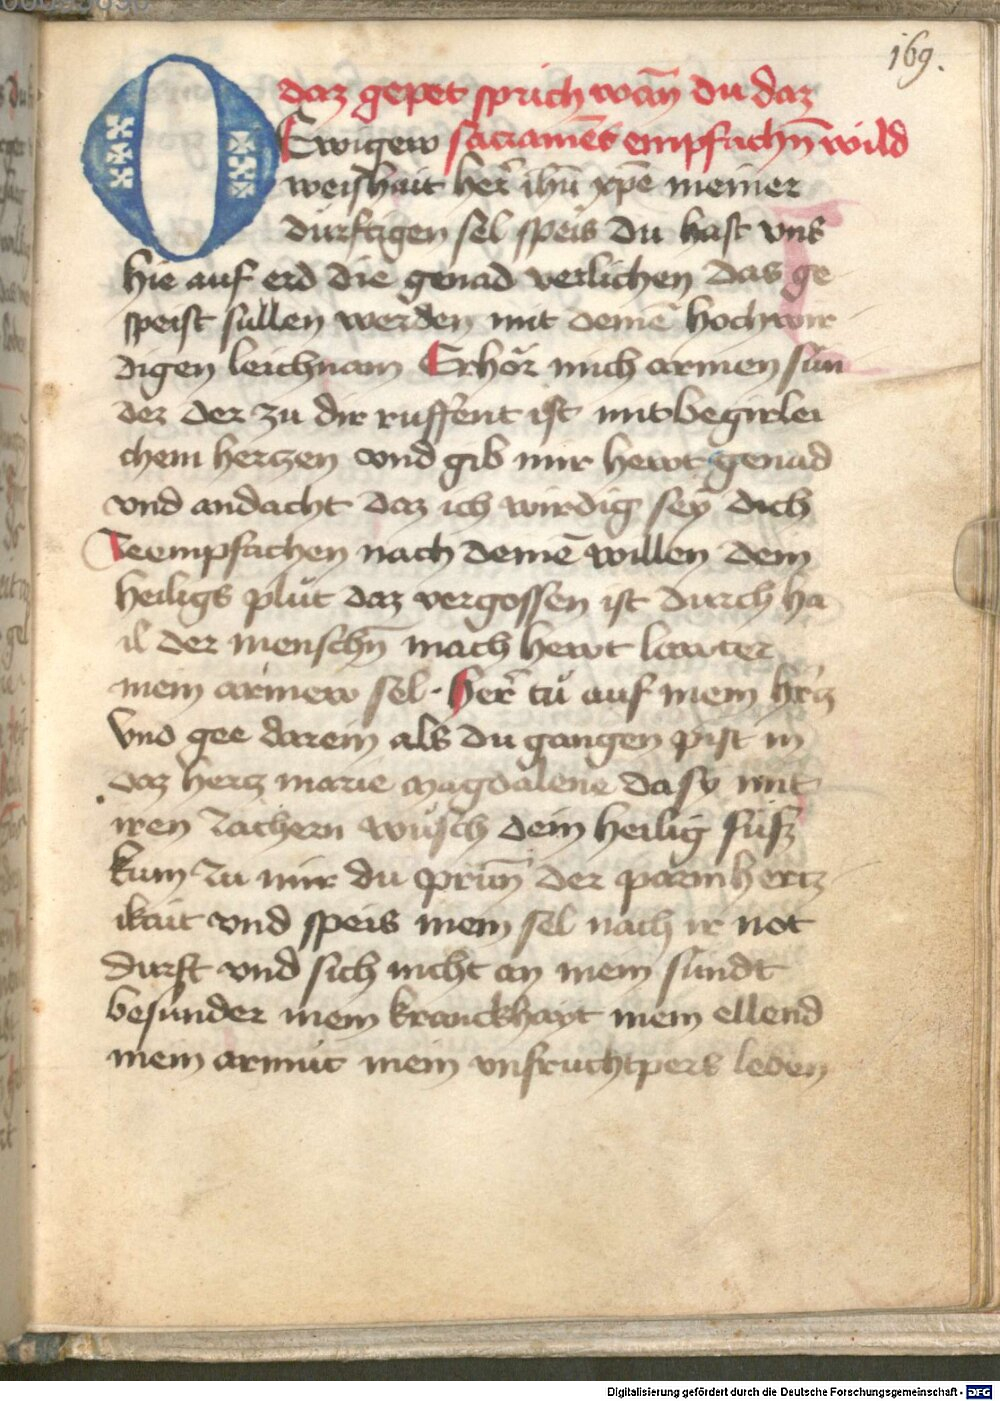 169.
daz gepet sprich wañ du daz
O Ewigew sacramēt empfachn̄ wild
weishait her̄ ihū xp̄e meiner
durftigen sel speis Du hast vns
hie auf erd die genad verlichen das ge
speist sullen werden mit deinē hochwir
digen leichnam Erhör mich armen sün
der der zu dir ruffent ist mit begirlei
chem hertzen vnd gib mir hewt genad
vnd andacht daz ich wirdig sey dich
zeempfachen nach deinē willen dein
heiligs plůt daz vergossen ist durch ha
il der menschn̄ mach hewt lawter
mein armew sel · Her̄ tů auf mein hertz
Vnd gee darein als du gangen pist in
daz hertz marie magdalene da sy mit
iren zachern wůsch dein heilig füsz
kum zu mir du prun̄ der parmhertz
ikait vnd speis mein sel nach ir not
durft vnd sich nicht an mein sündt
besunder mein kranckhayt mein ellend
mein armut mein vnfruchtpers leben
Digitalisierung gefördert durch die Deutsche Forschungsgemeinschaft - DFG